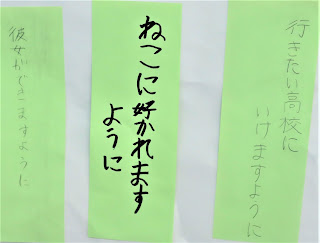 行きたい高校に
いけますように
ねこに好かれます
ように
彼女ができますように